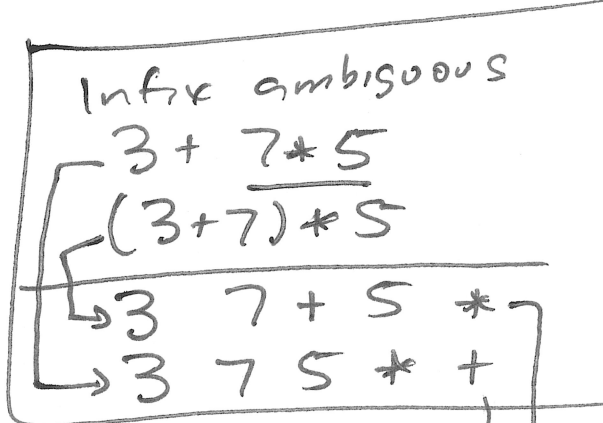 Infix ambiguous
3 + 7 * 5
(3+7) * 5
3 7 + 5 *
3 7 5 * +